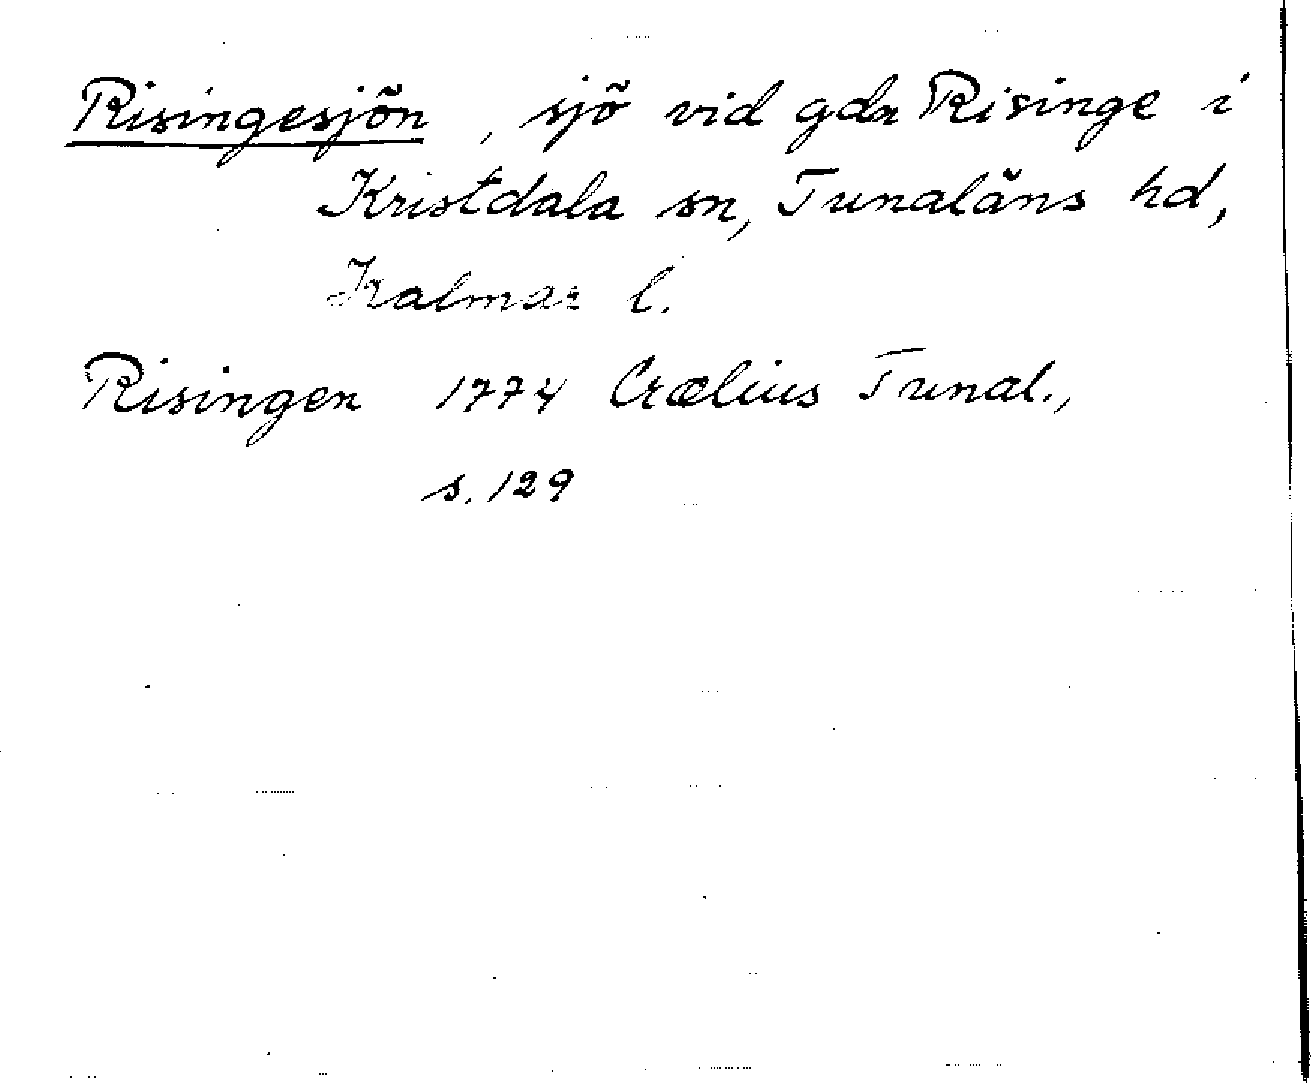 Risingesjön, sjö vid gdn Risinge i
Kristdala sn, Tunaläns hd,
Kalmar l.
Risingen 1774 Crælius Tunal.,
s. 129